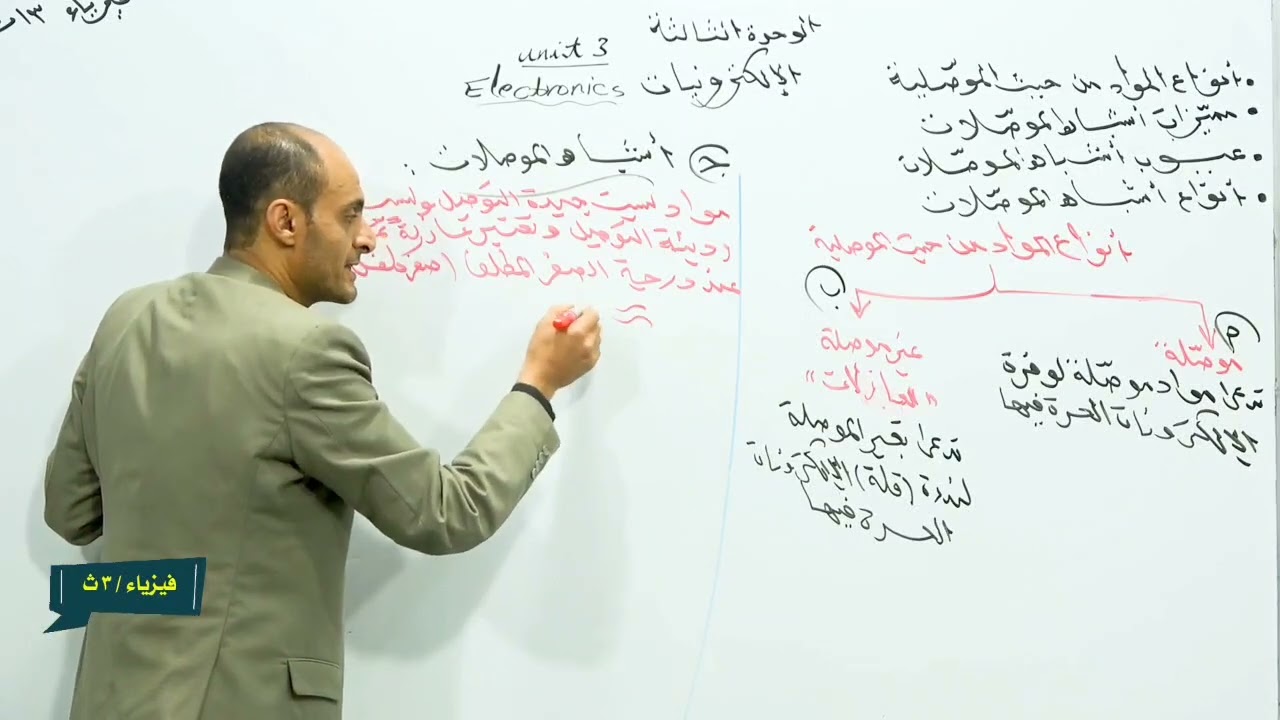 فيزياء ٣ث
الوحدة الثالثة
unit 3
الإلكترونيات Electronics
• أنواع المواد من حيث الموصلية
• مميّزات أشباه الموصّلات
• عيوب أشباه الموصّلات
• أنواع أشباه الموصّلات
أنواع المواد من حيث الموصلية
موصّلة
تدعى مواد موصّلة لوفرة
الإلكترونات الحرة فيها
ب
غير موصلة
"العازلات"
تدعى بغير الموصلة
لندرة (قلة) الإلكترونات
الحرة فيها
ج) أشباه الموصلات :
مواد ليست جيدة التوصيل وليست
رديئة التوصيل وتعتبر عازلة
عند درجة الصفر المطلق (صفر كلفن
فيزياء / ٣ ث